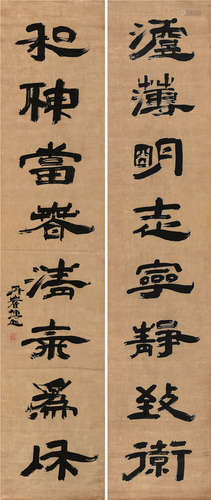 澹薄明志寧靜致衛
和神當春清氣為秋